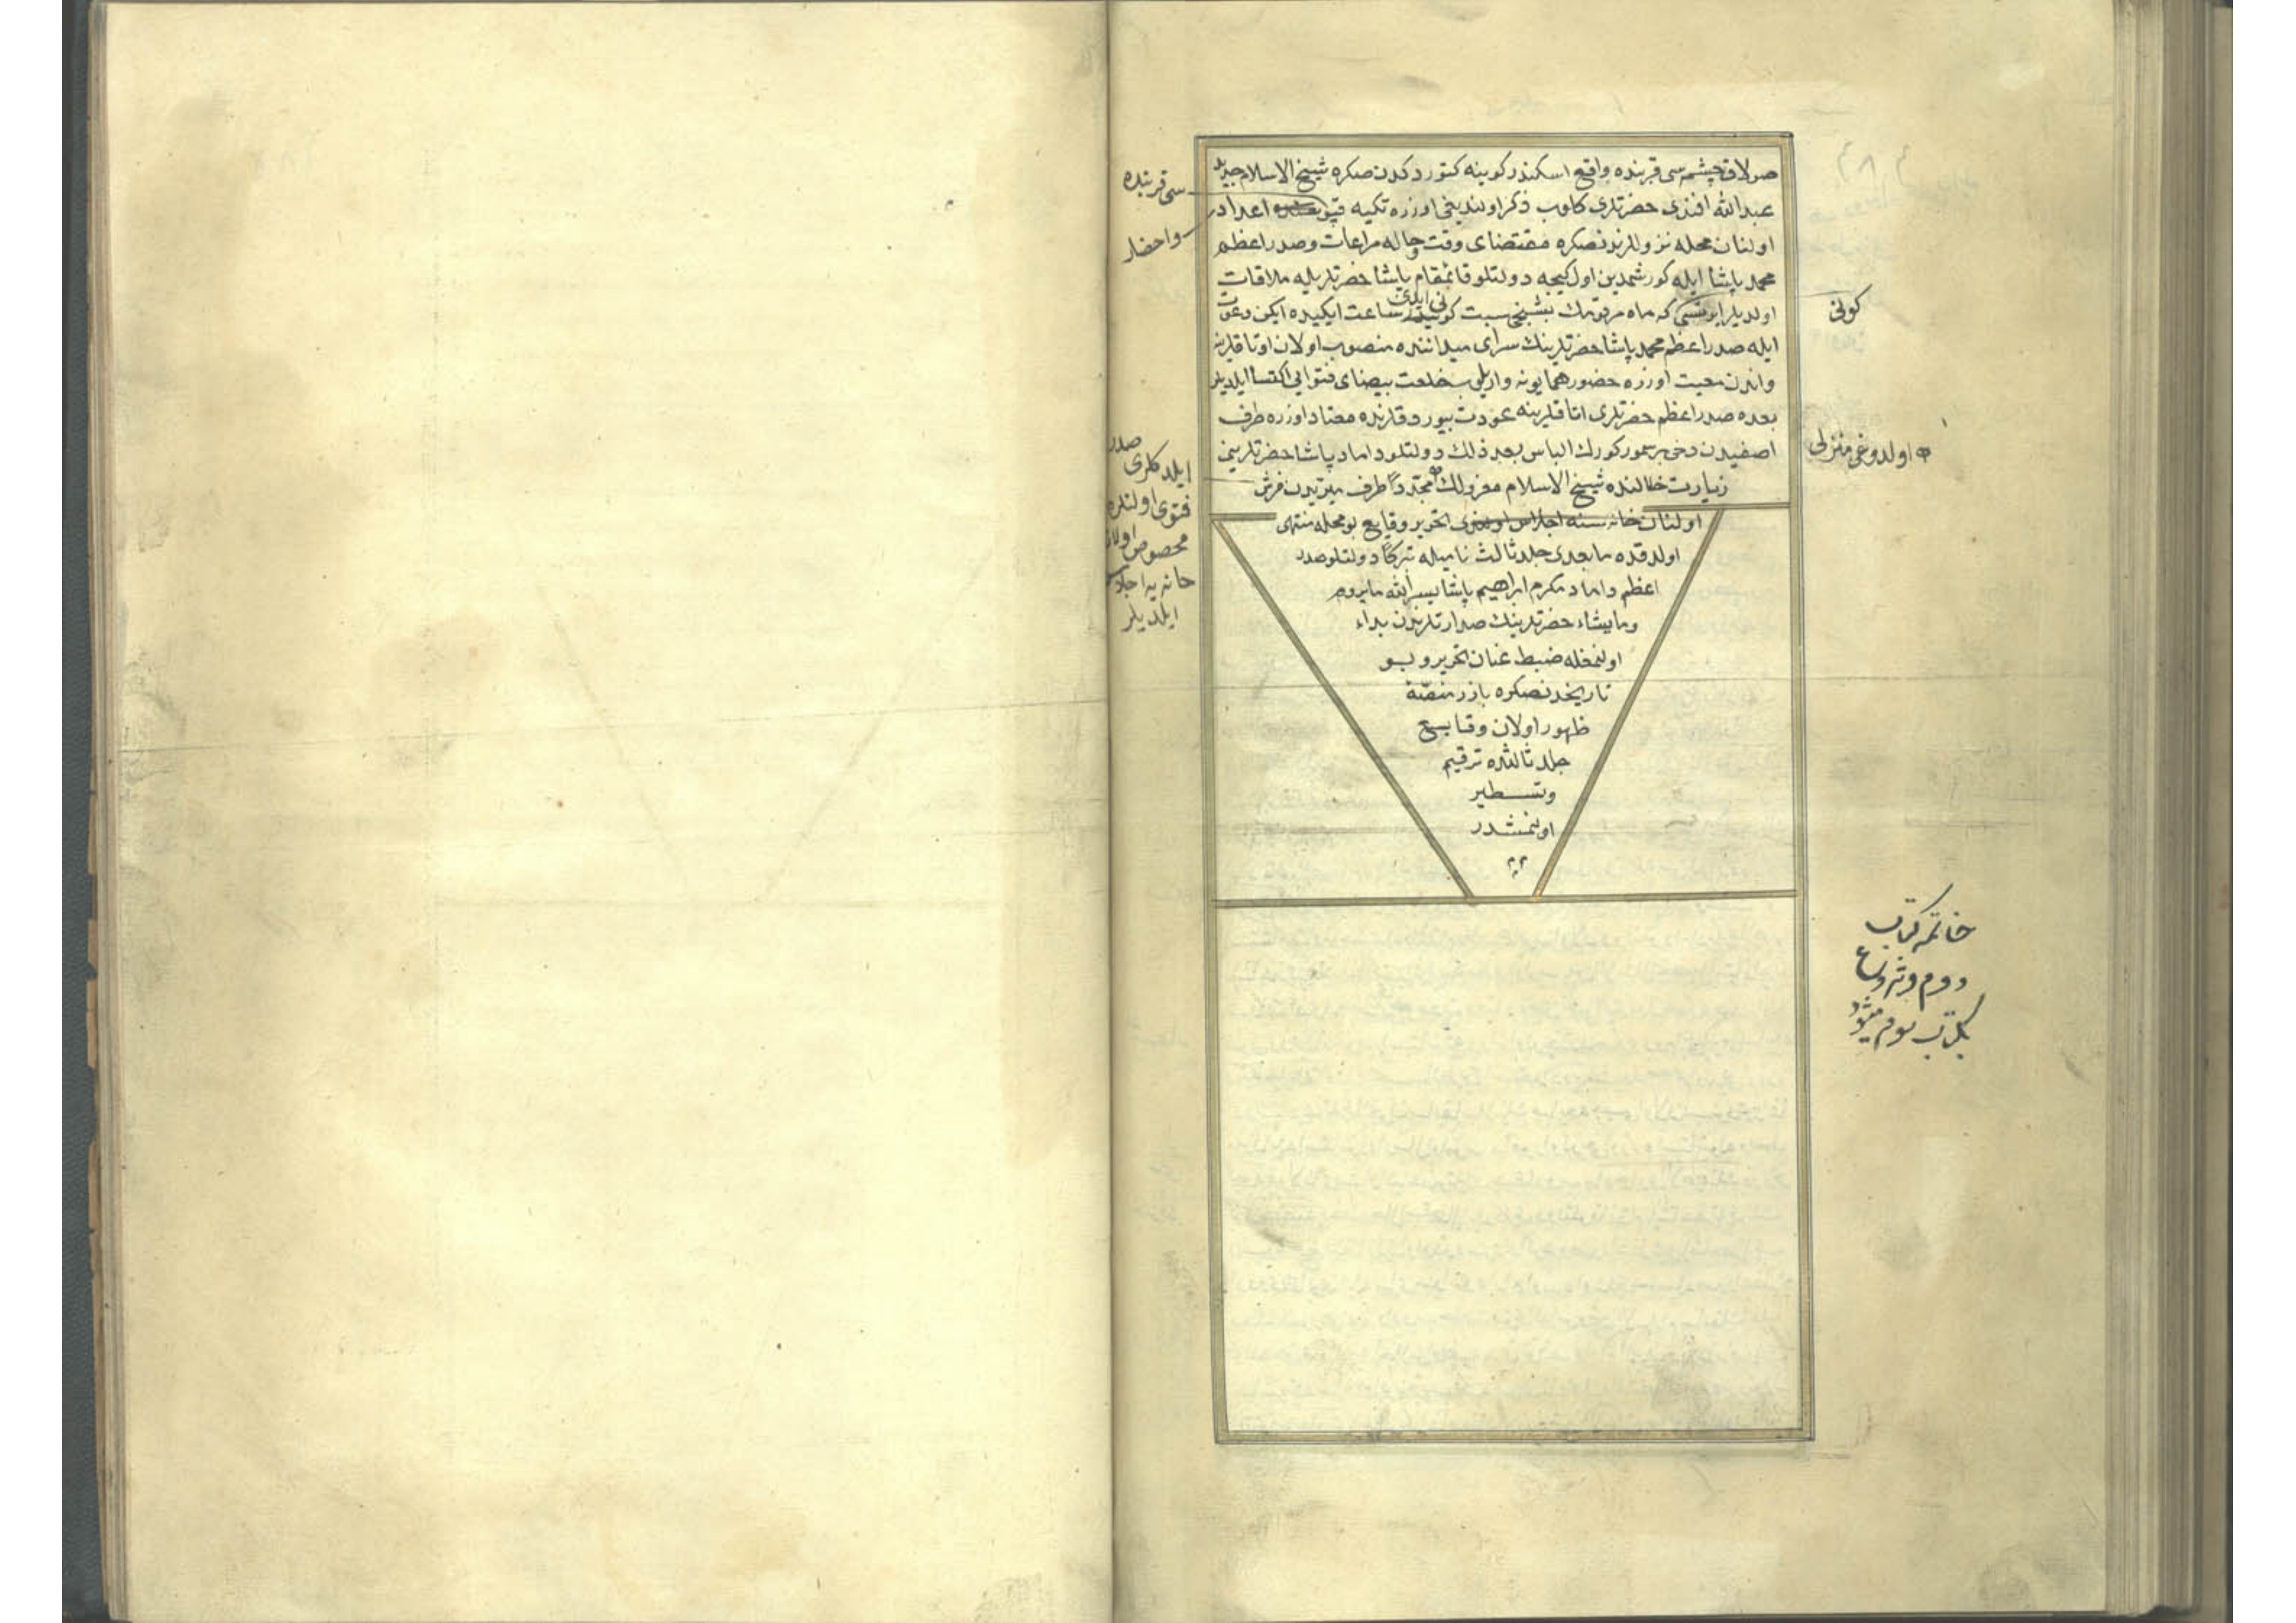 صولاق چشمه سی قربنده واقع اسكندر كوینه كتوردكدن صكره شیخ الاسلام جدید
عبد الله افندی حضرتلری كلوب ذكر اولندیغی اوزره تكیه قپوسنده اعداد
اولنان محله نزوللرندنصكره مقتضای وقت وحاله مراعات وصدر اعظم
محمد پاشا ایله كورشمدین اول كیجه دولتلو قائمقام پاشا حضرتلریله ملاقات
اولدیلر ایرتسی كه ماه مرقومك بشنجی سبت كونیدر ساعت ایكیده ایكن دعوت
ایله صدر اعظم محمد پاشا حضرتلرینك سرای میداننده منصوب اولان اوتاقلرینه
واندن معیت اوزره حضور همایونه واریلوب خلعت بیضای فتوایی اكتسا ایلدیلر
بعده صدر اعظم حضرتلری اتاقلرینه عودت بیوردقلرنده معتاد اوزره طرف
اصفیدن دخی بر سمور كورك الباس بعد ذلك دولتلو داماد پاشا حضرتلرینی
زیارت خلالنده شیخ الاسلام معزولك مجددا طرف میریدن فرش
اولنان خانه سنه اجلاس اولندی تحریر وقایع بو محله منتهی
اولدقده مابعدی جلد ثالث نامیله تبركا دولتلو صدر
اعظم وداماد مكرم ابراهیم پاشا یسر الله مایروم
ومایشاء حضرتلرینك صدارتلرندن بداء
اولنمغله ضبط عنان تحریر وبو
تاریخدنصكره بارز منصّة
ظهور اولان وقایع
جلد ثالثده ترقیم
وتسطیر
اولنمشدر
سی قربنده
واحضار
كونی
نی ایدی
اولدوغی منزلی
صدر
ایلدكلری
فتوی اولنلره
مخصوص اولان
خانه یه اجلاس
ایلدیلر
خاتمه كتاب
دوم وشروع
بكتاب سوم میشود